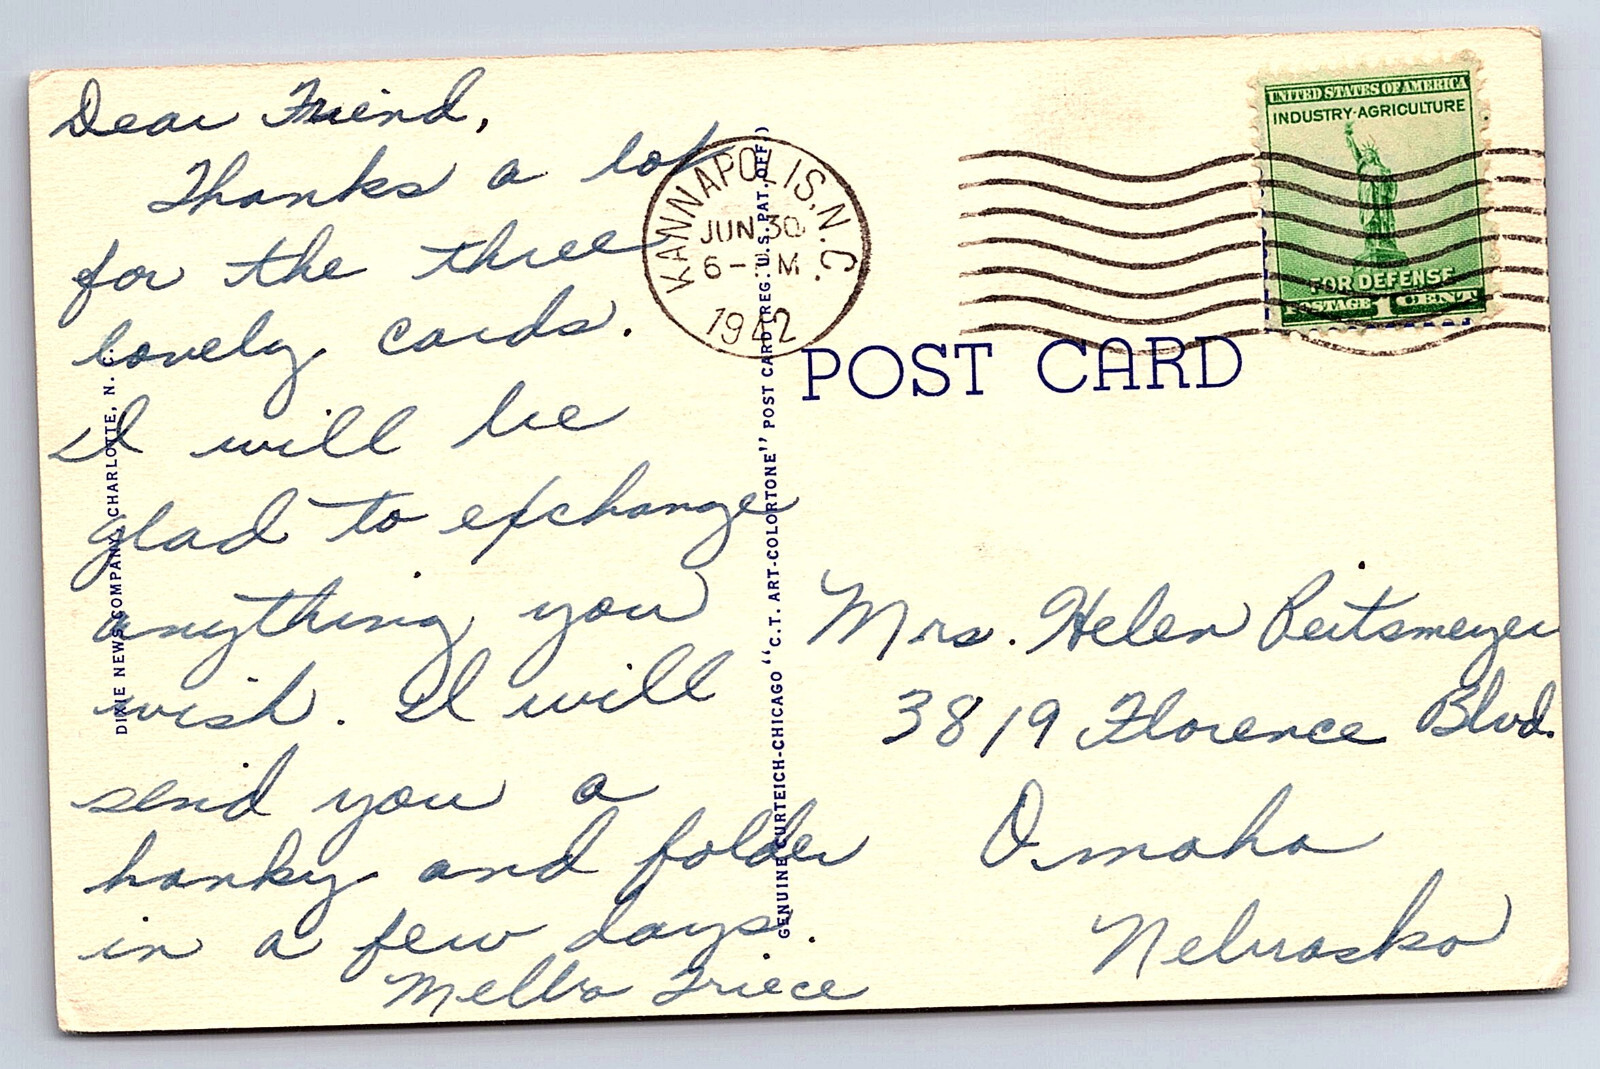 Dear Friend,
Thanks a lot
for the three
lovely cards.
I will be
glad to exchange
anything you
wish. I will
send you a
hanky and folder
in a few days.
Melba
KANNAPOLIS, N.C.
JUN 30
6- M
1942
UNITED STATES OF AMERICA
INDUSTRY·AGRICULTURE
FOR DEFENSE
POSTAGE 1 CENT
POST CARD
Mrs. Helen Reitsmeyer
3819 Florence Blvd.
Omaha
Nebraska
DIXIE NEWS COMPANY, CHARLOTTE, N. C.
GENUINE CURTEICH-CHICAGO "C.T. ART-COLORTONE" POST CARD (REG. U.S. PAT. OFF.)